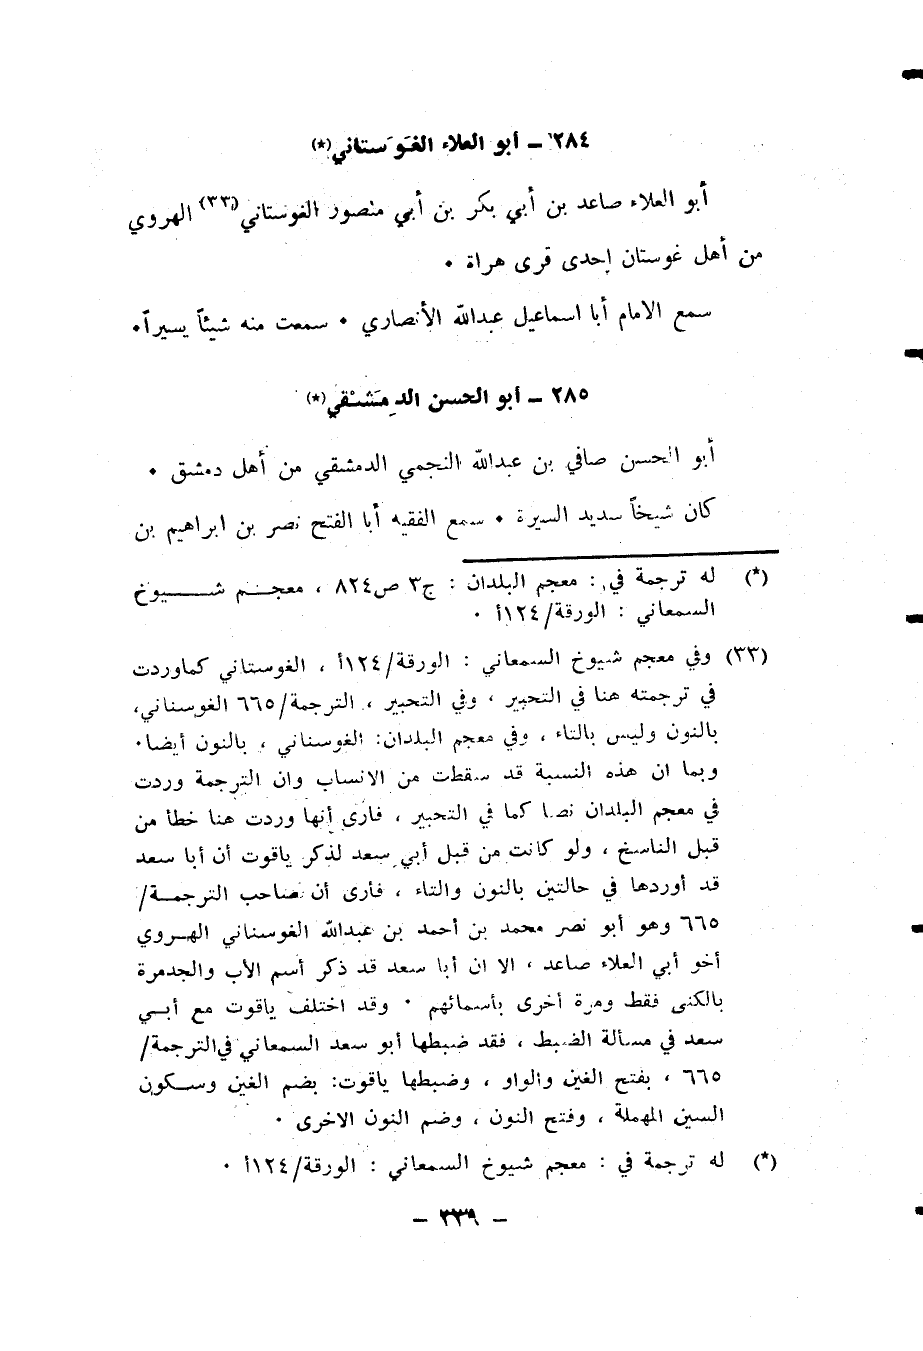 ٢٨٤ – أبو العلاء الغَوَستاني(*)
أبو العلاء صاعد بن أبي بكر بن أبي منصور الغوستاني(٣٣) الهروي
من أهل غوستان إحدى قرى هراة ٠
سمع الامام أبا اسماعيل عبدالله الأنصاري ٠ سمعت منه شيئاً يسيراً٠
٢٨٥ – أبو الحسن الدِمَشْقي(*)
أبو الحسن صافي بن عبدالله النجمي الدمشقي من أهل دمشق ٠
كان شيخاً سديد السيرة ٠ سمع الفقيه أبا الفتح نصر بن ابراهيم بن
(*) له ترجمة في : معجم البلدان : ج٣ ص٨٢٤ ، معجم شيوخ
السمعاني : الورقة/١٢٤أ ٠
(٣٣) وفي معجم شيوخ السمعاني : الورقة/١٢٤أ ، الغوستاني كماوردت
في ترجمته هنا في التحبير ، وفي التحبير ، الترجمة/٦٦٥ الغوسناني،
بالنون وليس بالتاء ، وفي معجم البلدان: الغوسناني ، بالنون أيضا٠
وبما ان هذه النسبة قد سقطت من الانساب وان الترجمة وردت
في معجم البلدان نصا كما في التحبير ، فأرى أنها وردت هنا خطأ من
قبل الناسخ ، ولو كانت من قبل أبي سعد لذكر ياقوت أن أبا سعد
قد أوردها في حالتين بالنون والتاء ، فأرى أن صاحب الترجمة/
٦٦٥ وهو أبو نصر محمد بن أحمد بن عبدالله الغوسناني الهروي
أخو أبي العلاء صاعد ، الا ان أبا سعد قد ذكر أسم الأب والجدمرة
بالكنى فقط ومرة أخرى بأسمائهم ٠ وقد اختلف ياقوت مع أبي
سعد في مسألة الضبط ، فقد ضبطها أبو سعد السمعاني في‌الترجمة/
٦٦٥ ، بفتح الغين والواو ، وضبطها ياقوت: بضم الغين وسكون
السين المهملة ، وفتح النون ، وضم النون الاخرى ٠
(*) له ترجمة في : معجم شيوخ السمعاني : الورقة/١٢٤أ ٠
– ٣٣٩ –